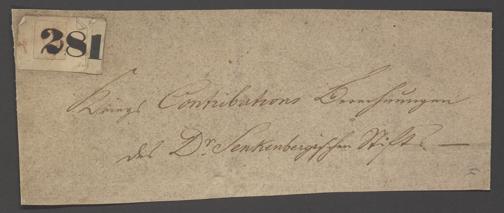 281
Kriegs Contributions Berechnungen
des Dr. Senkenbergischen Stifts —